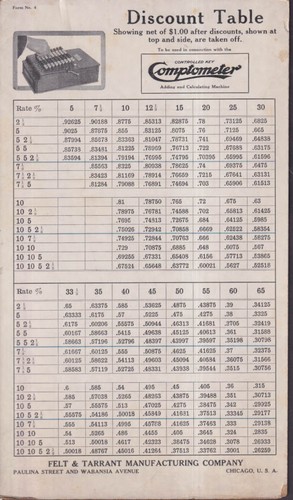 Form No. 4
Discount Table
Showing net of $1.00 after discounts, shown at
top and side, are taken off.
To be used in connection with the
CONTROLLED-KEY
Comptometer
Adding and Calculating Machine
Rate % 5 7½ 10 12½ 15 20 25 30
2½ .92625 .90188 .8775 .85313 .82875 .78 .73125 .6825
5 .9025 .87875 .855 .83125 .8075 .76 .7125 .665
5 2½ .87994 .85678 .83363 .81047 .78731 .741 .69469 .64838
5 5 .85738 .83481 .81225 .78969 .76713 .722 .67688 .63175
5 5 2½ .83594 .81394 .79194 .76995 .74795 .70395 .65995 .61596
7½ .85563 .8325 .80938 .78625 .74 .69375 .6475
7½ 2½ .83423 .81169 .78914 .76659 .7215 .67641 .63131
7½ 5 .81284 .79088 .76891 .74694 .703 .65906 .61513
10 .81 .78750 .765 .72 .675 .63
10 2½ .78975 .76781 .74588 .702 .65813 .61425
10 5 .7695 .74813 .72675 .684 .64125 .5985
10 5 2½ .75026 .72942 .70858 .6669 .62522 .58354
10 7½ .74925 .72844 .70763 .666 .62438 .58275
10 10 .729 .70875 .6885 .648 .6075 .567
10 10 5 .69255 .67331 .65408 .6156 .57713 .53865
10 10 5 2½ .67524 .65648 .63772 .60021 .5627 .52518
Rate % 33⅓ 35 40 45 50 55 60 65
2½ .65 .63375 .585 .53625 .4875 .43875 .39 .34125
5 .63333 .6175 .57 .5225 .475 .4275 .38 .3325
5 2½ .6175 .60206 .55575 .50944 .46313 .41681 .3705 .32419
5 5 .60167 .58663 .5415 .49638 .45125 .40613 .361 .31588
5 5 2½ .58663 .57196 .52796 .48397 .43997 .39597 .35198 .30798
7½ .61667 .60125 .555 .50875 .4625 .41625 .37 .32375
7½ 2½ .60125 .58622 .54113 .49603 .45094 .40584 .36075 .31566
7½ 5 .58583 .57119 .52725 .48331 .43938 .39544 .3515 .30756
10 .6 .585 .54 .495 .45 .405 .36 .315
10 2½ .585 .57038 .5265 .48263 .43875 .39488 .351 .30713
10 5 .57 .55575 .513 .47025 .4275 .38475 .342 .29925
10 5 2½ .55575 .54186 .50018 .45849 .41681 .37513 .33345 .29177
10 7½ .555 .54113 .4995 .45788 .41625 .37463 .333 .29138
10 10 .54 .5265 .486 .4455 .405 .3645 .324 .2835
10 10 5 .513 .50018 .4617 .42323 .38475 .34628 .3078 .26933
10 10 5 2½ .50018 .48767 .45016 .41264 .37513 .33762 .3001 .26259
FELT & TARRANT MANUFACTURING COMPANY
PAULINA STREET AND WABANSIA AVENUE CHICAGO, U. S. A.